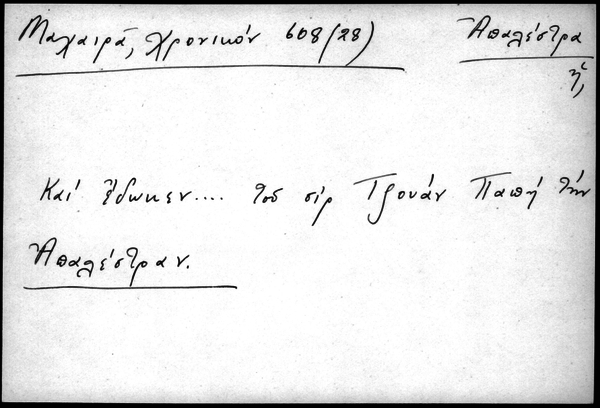 Μαχαιρά, Χρονικόν 608 (28)
Ἀπαλέστρα
ἡ,
Καί ἔδωκεν.... τοῦ σίρ Τζουάν Παπή τήν
Ἀπαλέστραν.